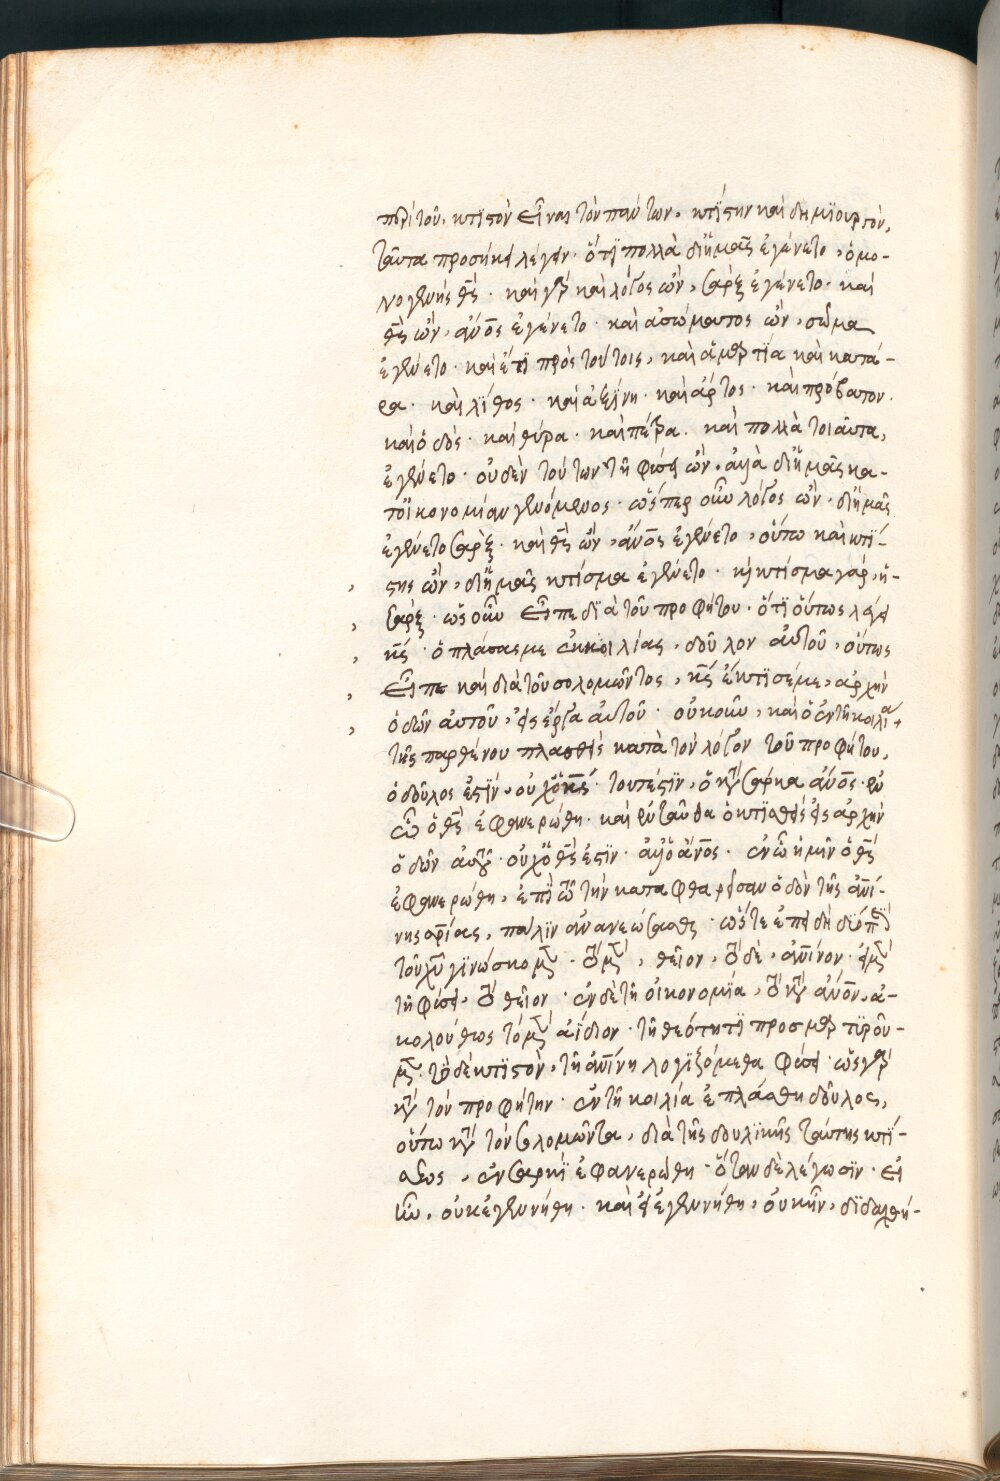 περὶ τοῦ. κτϊστὸν εἶναι τὸν πάντων, κτίστην καὶ δημϊουργὸν,
ταῦτα προσήκει λέγειν· ὅτϊ πολλὰ δϊ' ἡμᾶς ἐγένετο, ὁ μο-
νογενὴς θς· καὶ γὰρ καὶ λόγος ὢν, σὰρξ ἐγένετο· καὶ
θς ὢν, ἄνος ἐγένετο· καὶ ἀσώματος ὢν, σῶμα
ἐγένετο· καὶ ἔτϊ πρὸς τούτοις, καὶ ἁμαρτϊα καὶ κατά-
ρα· καὶ λϊθος· καὶ ἀξϊνη· καὶ ἄρτος· καὶ πρόβατον·
καὶ ὁδὸς· καὶ θύρα· καὶ πέτρα· καὶ πολλὰ τοιαῦτα,
ἐγένετο· οὐδὲν τούτων τῆ φύσει ὢν, ἀλλὰ δϊ' ἡμᾶς κα-
τοϊκονομίαν γενόμενος· ὥσπερ οὖν λόγος ὢν· δϊ' ἡμᾶς
ἐγένετο σὰρξ· καὶ θς ὢν, ἄνος ἐγένετο, οὕτω καὶ κτϊ-
στης ὢν, δϊ' ἡμᾶς κτίσμα ἐγένετο· κτίσμα γάρ, ἡ-
σὰρξ· ὡς οὖν εἶπε δϊὰ τοῦ προφήτου· ὅτϊ οὕτως λέγει
κς· ὁ πλάσας με ἐκ κοιλίας, δοῦλον αὐτοῦ, οὕτως
εἶπε καὶ διὰ τοῦ σολομῶντος, κς ἔκτϊσέ με, ἀρχὴν
ὁδῶν αὐτοῦ, εἰς ἔργα αὐτοῦ· οὐκοῦν, καὶ ὁ ἐν τῆ κοιλία
τῆς παρθένου πλασθεὶς κατὰ τὸν λόγον τοῦ προφήτου,
ὁ δοῦλος ἐστϊν, οὐχ ὁ κς· τουτέστϊν, ὁ κατὰ σάρκα ἄνος· ἐν
ᾧ ὁ θς ἐφανερώθη· καὶ ἐνταῦθα ὁ κτϊσθεὶς εἰς ἀρχὴν
ὁδῶν αὐτοῦ· οὐχ ὁ θς ἐστϊν· ἀλλ' ὁ ἄνος· ἐν ᾧ ἡμῖν ὁ θς
ἐφανερώθη, ἐπϊ τῶ τὴν καταφθαρεῖσαν ὁδὸν τῆς ἀνί-
νης σρίας, πάλϊν ἀνανεώσασθαι· ὥστε ἐπειδὴ
τοῦ χυ γϊνώσκομεν· τὸ μὲν, θεῖον, τὸ δὲ, ἀνίνον·
τῆ φύσει, τὸ θεῖον· ἐν δὲ τῆ οἰκονομϊα, τὸ κατὰ ἄνον, ἀ-
κολούθως τὸ μὲν ἀΐδιον· τῆ θεότητϊ προσμαρτϊροῦ-
μεν· τὸ δὲ κτϊστὸν, τῆ ἀνίνη λογϊζόμεθα φύσει· ὡς γὰρ
κατὰ τὸν προφήτην· ἐν τῆ κοιλία ἐπλάσθη δοῦλος,
οὕτω κατὰ τὸν σολομῶντα, διὰ τῆς δουλϊκῆς ταύτης κτϊ-
σεως, ἐν σαρκϊ ἐφανερώθη· ὅταν δὲ λέγωσϊν· εἰ
ἦν, οὐκ ἐγεννήθη· καὶ εἰ ἐγεννήθη, οὐκ ἦν, δϊδαχθή-